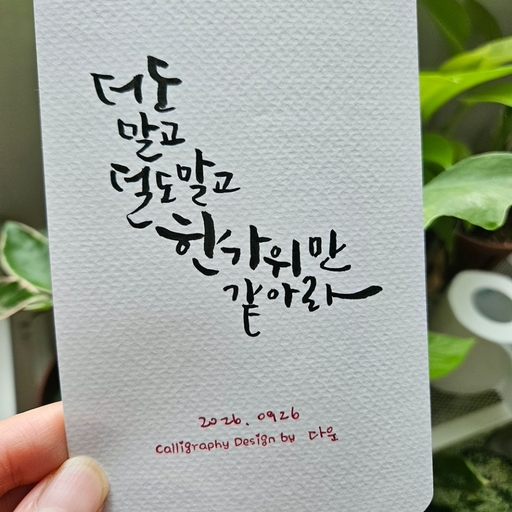 더도
말고
덜도말고
한가위만
같아라
2026. 0926
Calligraphy Design by 다움